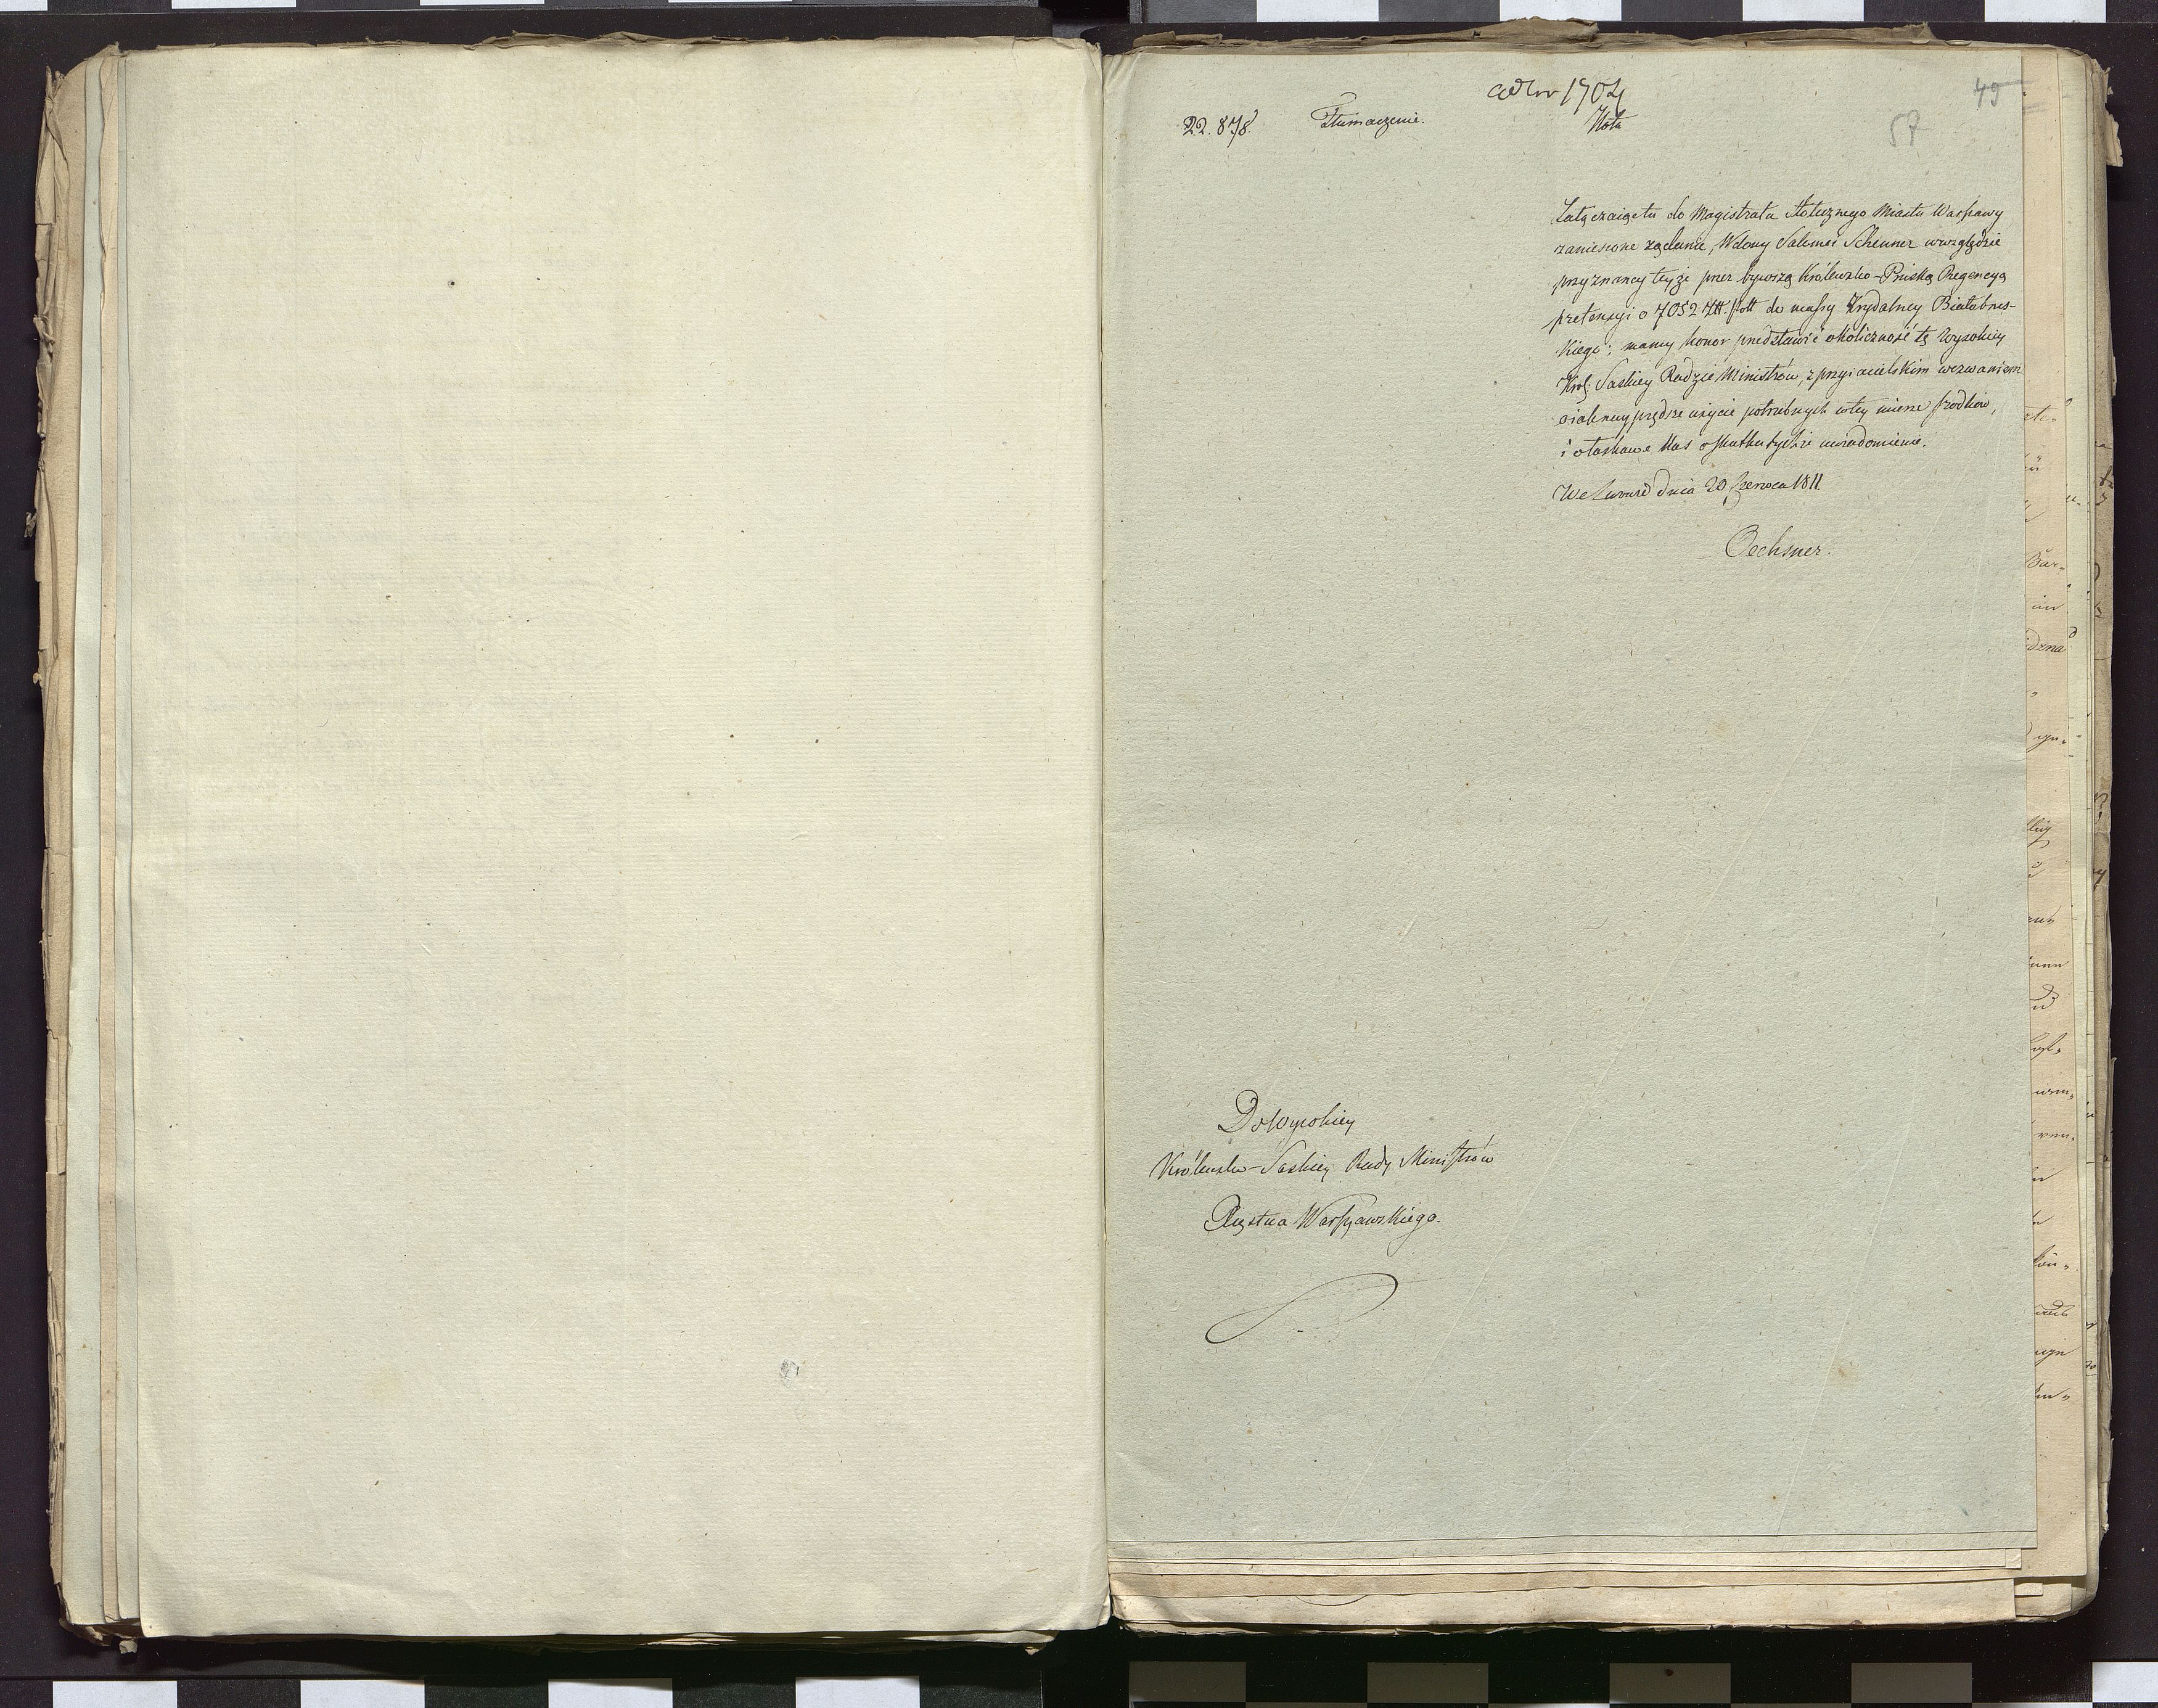 ad nr 1704
49
22.878. Tłumaczenie. Nota
57
Załączaiąc tu do Magistratu Stołecznego Miasta Warszawy
zaniesione żądanie, Wdowy Salomei Scheuner wwzględzie
przyznaney teyże przez bywszą Królewsko-Pruską Regencyą
pretensyi o 7052 do massy Krydalney Białobrzes-
kiego; mamy honor przedstawić okoliczność tę Wysokiey
Król: Saskiey Radzie Ministrów, z przyiacielskim wezwaniem
o iak nayprędsze użycie potrzebnych wtey mierze srodków,
i o łaskawe Nas o skutku tychże uwiadomienie.
dnia 20 Czerwca 1811.
Oechsner.
Do Wysokiey
Królewsko-Saskiey Rady Ministrów
Xięstwa Warszawskiego.